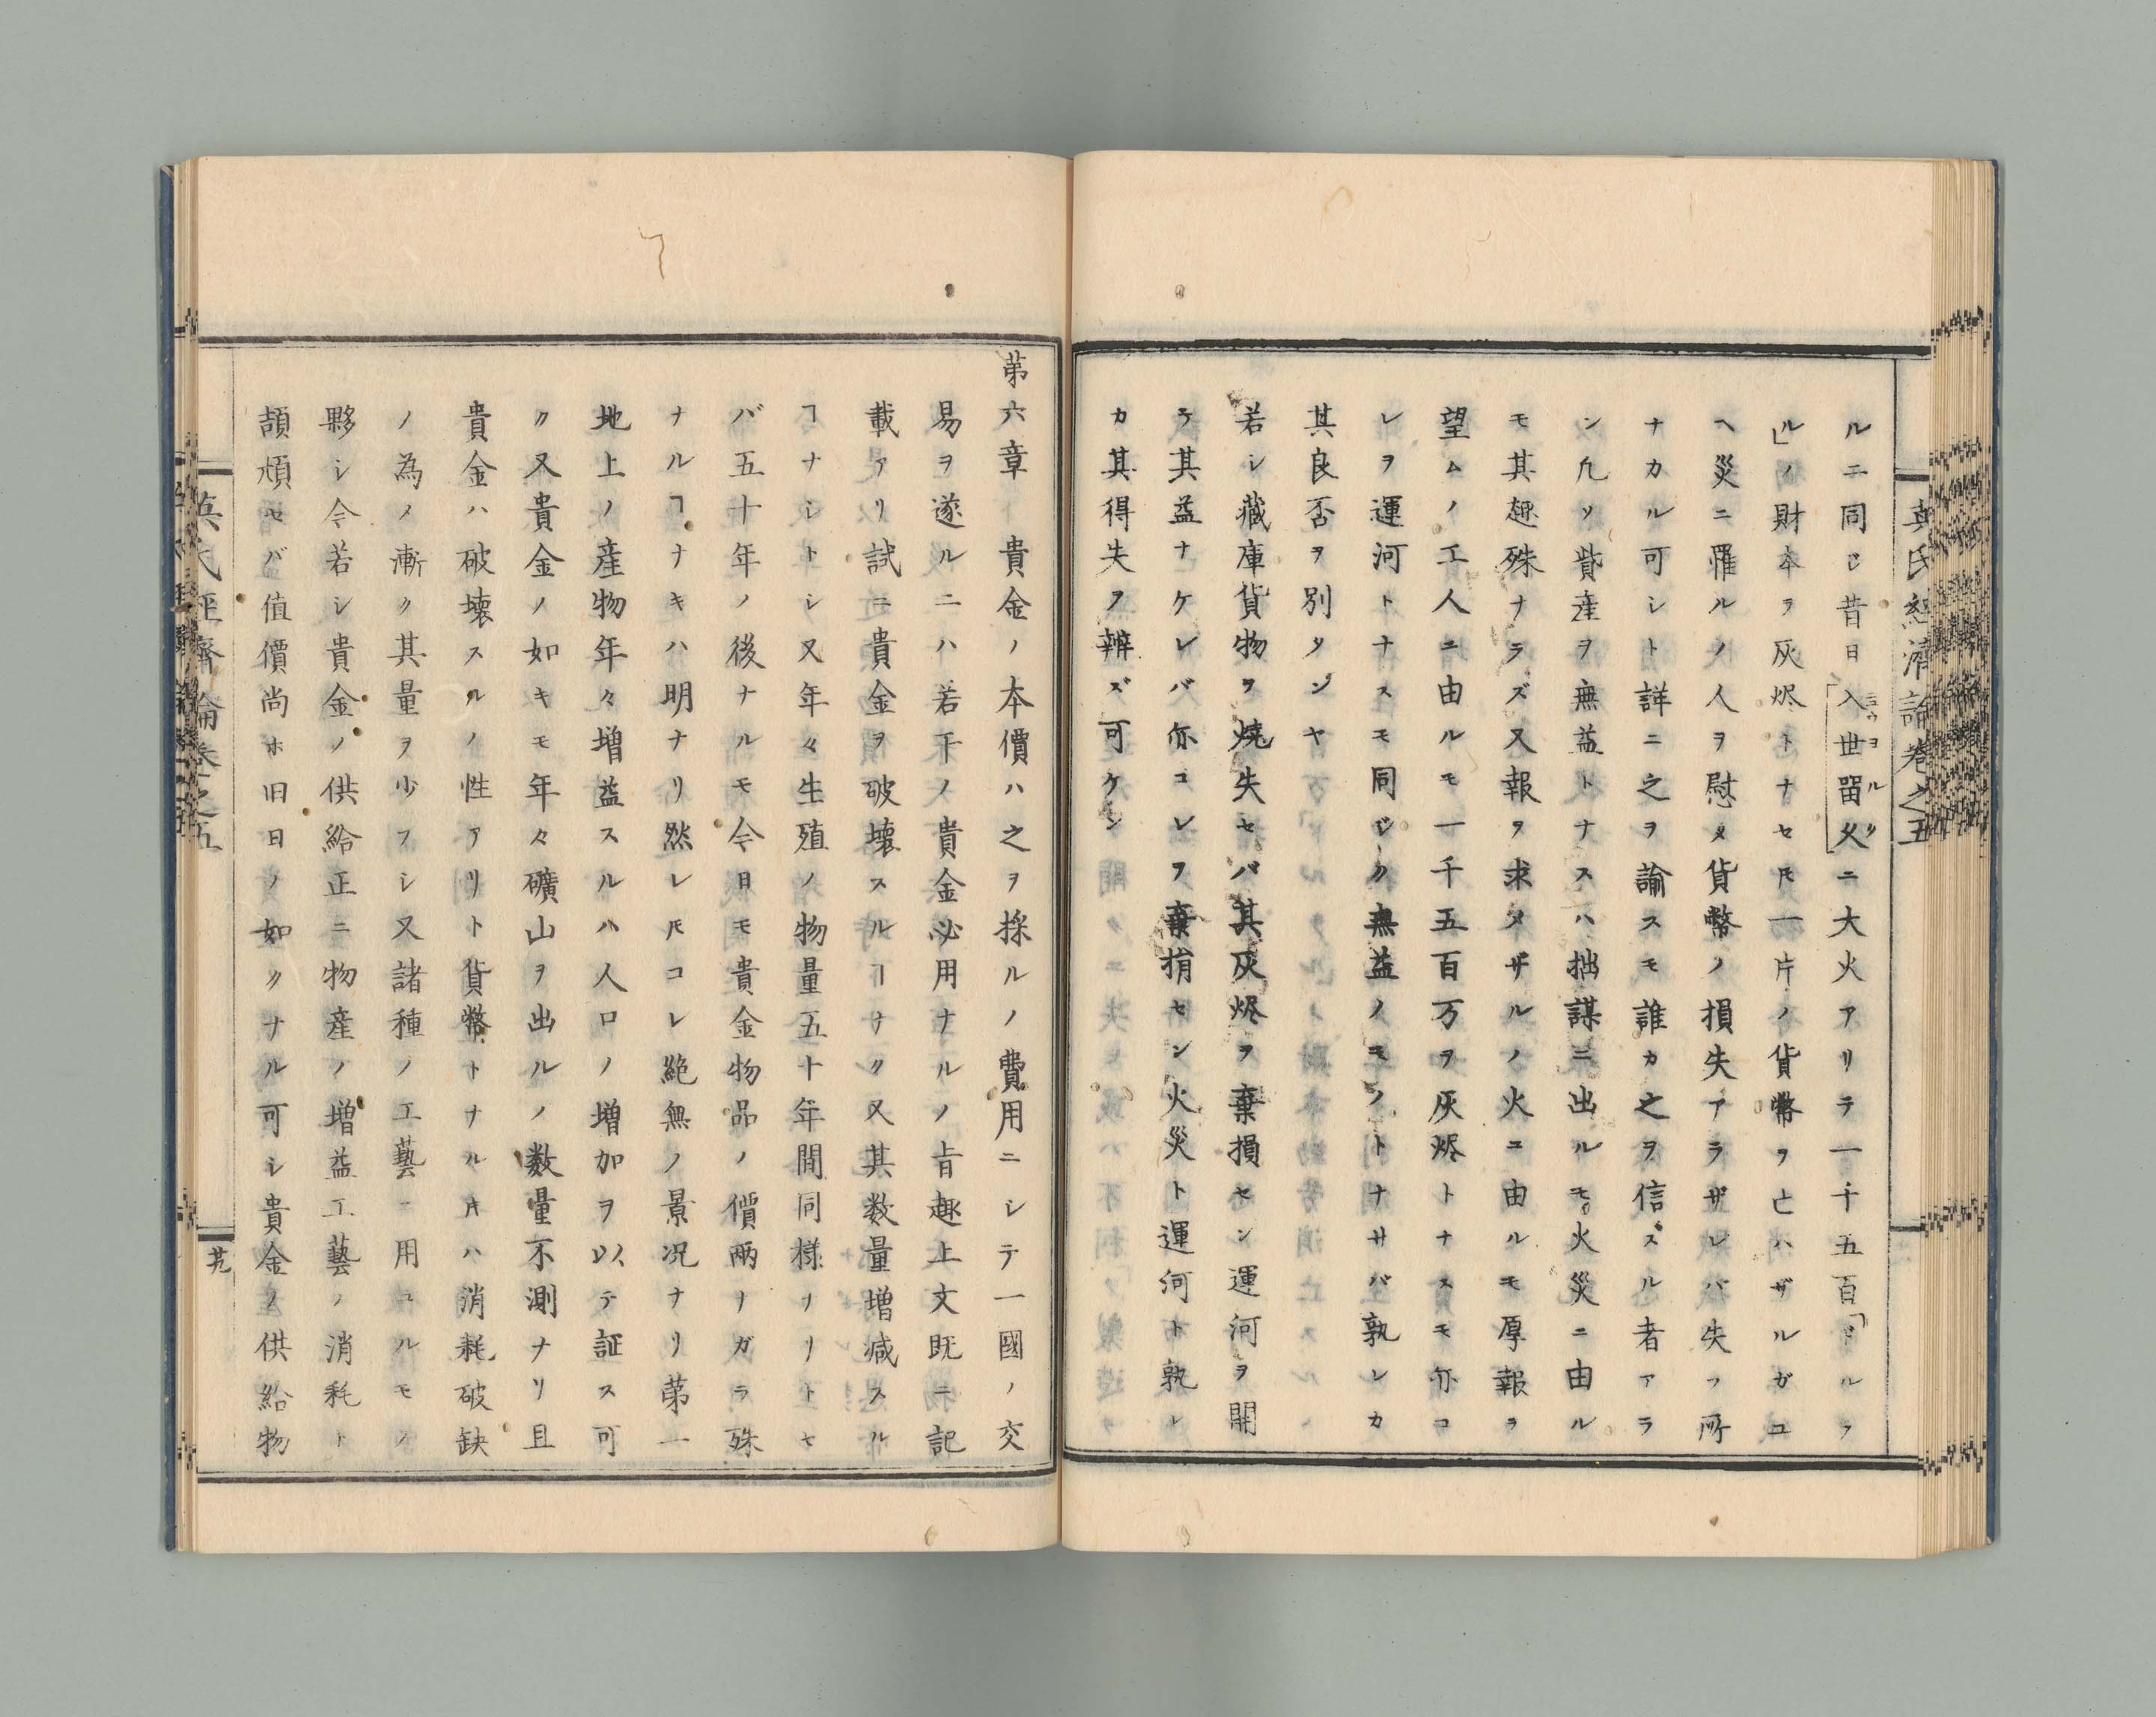 英氏経済論巻之五
ルニ同シ昔日「入世畱叉」ニ大火アリテ一千五百「ドルラ
ル」ノ財本ヲ灰烬トナセ𪜈一片ノ貨幣ヲ亡ハザルガユ
ヘ災ニ罹ルノ人ヲ慰メ貨幣ノ損失アラザレバ失フ所
ナカル可シト詳ニ之ヲ諭スモ誰カ之ヲ信スル者アラ
ン凢ソ貲産ヲ無益トナスハ拙謀ニ出ルモ火災ニ由ル
モ其趣殊ナラズ又報ヲ求メザルノ火ニ由ルモ厚報ヲ
望ムノ工人ニ由ルモ一千五百万ヲ灰烬トナスモ亦コ
レヲ運河トナスモ同ジク無益ノモノトナサバ孰レカ
其良否ヲ別タンヤ
若シ藏庫貨物ヲ燒失セバ其灰烬ヲ棄損セン運河ヲ開
テ其益ナケレバ亦コレヲ棄捐セン火災ト運河ト孰レ
カ其得失ヲ辨ズ可ケン
苐六章 貴金ノ本價ハ之ヲ採ルノ費用ニシテ一國ノ交
易ヲ遂ルニハ若干ノ貴金必用ナルノ旨趣上文既ニ記
載アリ試ニ貴金ヲ破壊スルヿナク又其数量増减スル
ヿナシトシ又年々生殖ノ物量五十年間同様ナリトセ
バ五十年ノ後ナルモ今日モ貴金物品ノ價兩ナガラ殊
ナルヿナキハ明ナリ然レ𪜈コレ絶無ノ景况ナリ苐一
地上ノ産物年々増益スルハ人口ノ増加ヲ以テ証ス可
ク又貴金ノ如キモ年々礦山ヲ出ルノ数量不測ナリ且
貴金ハ破壊スルノ性アリト貨幣トナル𪜈ハ消耗破缺
ノ為ノ漸ク其量ヲ少フシ又諸種ノ工藝ニ用ユルモノ
夥シ今若シ貴金ノ供給正ニ物産ノ増益工藝ノ消耗ト
頡頏セバ値價尚ホ旧日ノ如クナル可シ貴金ノ供給物
英氏経濟論巻之五